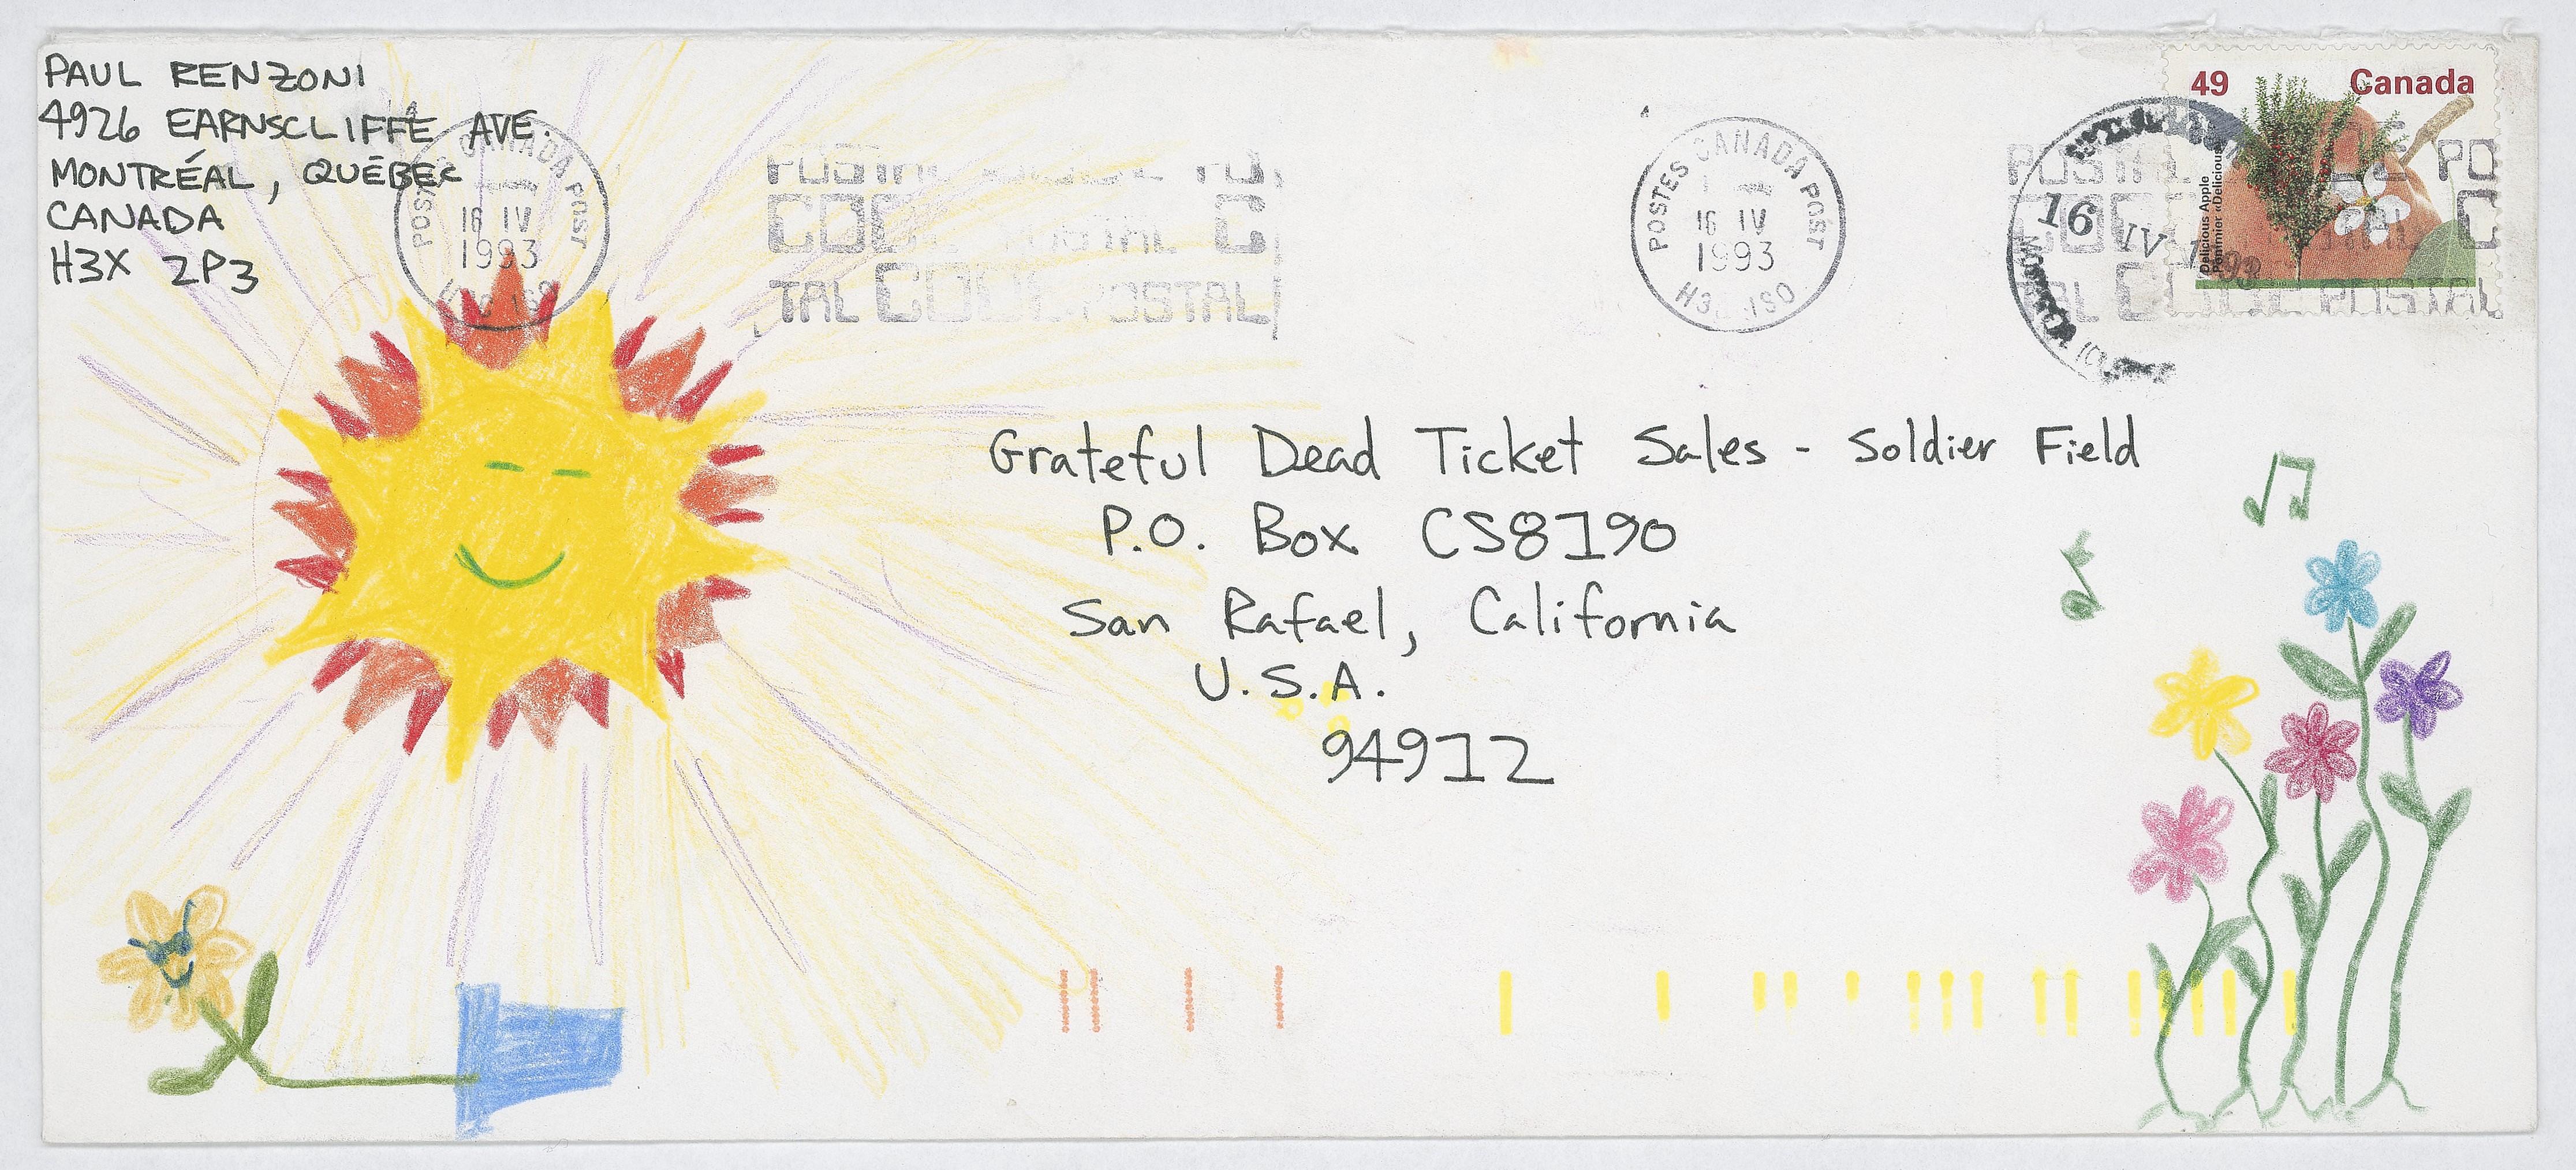 PAUL RENZONI
4926 EARNSCLIFFE AVE.
MONTRÉAL, QUÉBEC
CANADA
H3X 2P3
POSTES CANADA POST
16 IV
1993
POSTAL
TAL CODE POSTAL
POSTES CANADA POST
16 IV
1993
49 Canada
Delicious Apple
Pommier «Delicious
16 IV
POSTAL
Grateful Dead Ticket Sales - Soldier Field
P.O. Box CS8190
San Rafael, California
U.S.A.
94912